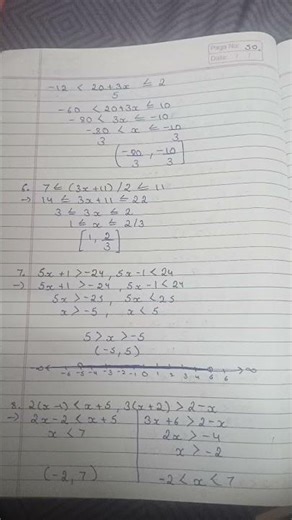 Page No: 30.
Date: / /
-12 < 20+3x ≤ 2
5
-60 < 20+3x ≤ 10
-80 < 3x ≤ -10
-80 < x ≤ -10
3 3
(-80/3, -10/3)
6. 7 ≤ (3x+11)/2 ≤ 11
→ 14 ≤ 3x+11 ≤ 22
3 ≤ 3x ≤ 2
1 ≤ x ≤ 2/3
[1, 2/3]
7. 5x+1 > -24, 5x-1 < 24
→) 5x+1 > -24, 5x-1 < 24
5x > -25, 5x < 25
x > -5, x < 5
5 > x > -5
(-5, 5)
-6 -5 -4 -3 -2 -1 0 1 2 3 4 5 6
8. 2(x-1) < x+5, 3(x+2) > 2-x
→ 2x-2 < x+5 3x+6 > 2-x
x < 7 2x > -4
x > -2
(-2, 7) -2 < x < 7